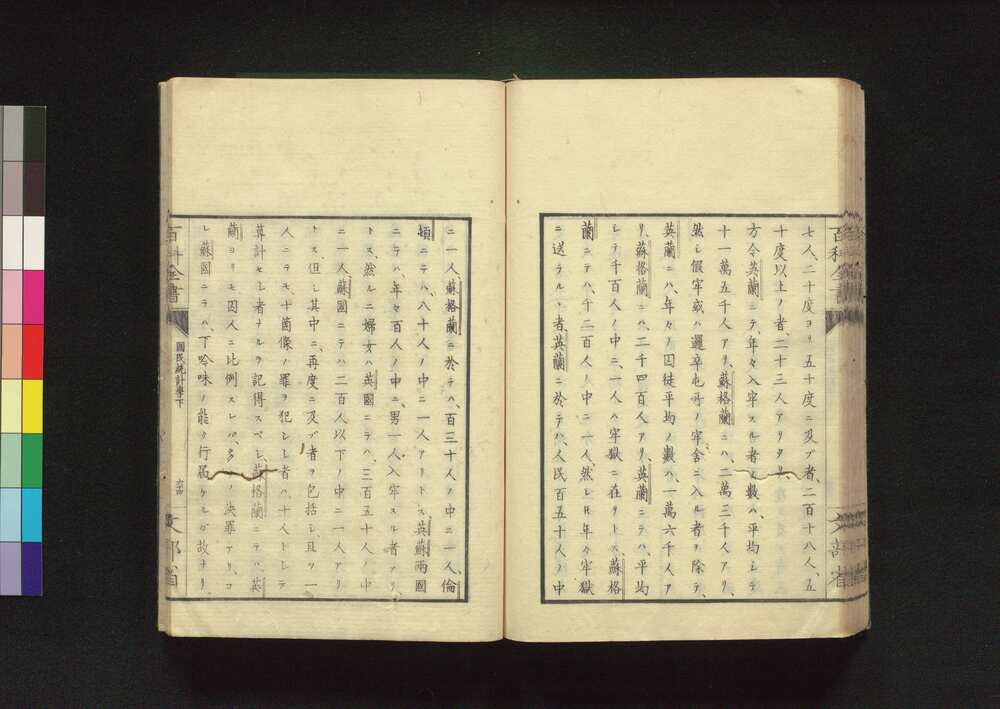 七人、二十度ヨリ五十度ニ及ブ者、二百十八人、五
十度以上ノ者、二十三人アリタリ、
方今英蘭ニテ、年々入牢スル者ノ數ハ、平均シテ
十一萬五千人アリ、蘇格蘭ニハ、二萬三千人アリ、
然レ𪜈假牢或ハ邏卒屯所ノ牢舎ニ入ル者ヲ除テ、
英蘭ニハ、年々ノ囚徒平均ノ數ハ、一萬六千人ア
リ、蘇格蘭ニハ、二千四百人アリ、英蘭ニテハ、平均
シテ千百人ノ中ニ、一人ハ牢獄ニ在リトス、蘇格
蘭ニテハ、千二百人ノ中ニ一人、然レ𪜈年々牢獄
ニ送ラルヽ者、英蘭ニ於テハ、人民百五十人ノ中
百科全書
文部省
ニ一人、蘇格蘭ニ於テハ、百三十人ノ中ニ一人、倫
頓ニテハ、八十人ノ中ニ一人アリトス、英蘇兩國
ニテハ、年々百人ノ中ニ、男一人入牢スル者アリ
トス、然ルニ婦女ハ英國ニテハ、三百五十人ノ中
ニ一人、蘇國ニテハ二百人以下ノ中ニ一人アリ
トス、但シ其中ニ、再度ニ及ブ者ヲ包括シ、且ツ一
人ニテモ十箇條ノ罪ヲ犯シヽ者ハ、十人トシテ
算計セシ者ナルヲ記得スベシ、蘇格蘭ニテハ、英
蘭ヨリモ囚人ニ比例スレバ、多クノ決罪アリ、コ
レ蘇國ニテハ、下吟味ノ能ク行届ケルガ故ナリ、
百科全書
國民統計學下
六十四
文部省